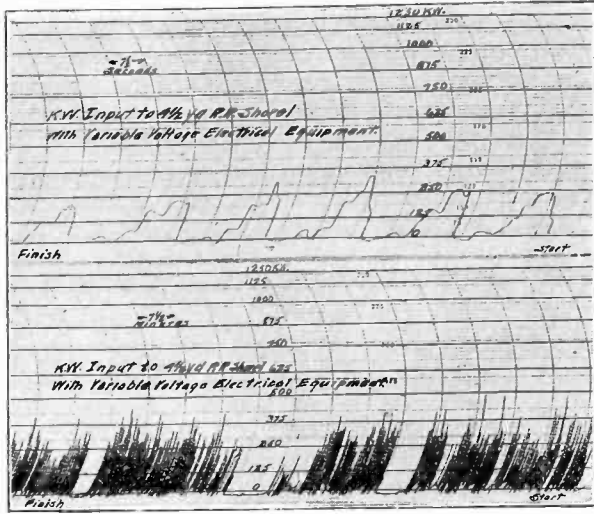 1250 KW.
1125
1000
875
750
625
500
375
250
125
0
7½
Seconds
KW. Input to 4½ yd R.R. Shovel
With Variable Voltage Electrical Equipment.
Finish
Start
1250 KW.
1125
1000
875
750
7½
Minutes
KW. Input to 4½ yd R.R. Shovel 625
With Variable Voltage Electrical Equipment.
500
375
250
125
0
Finish
Start